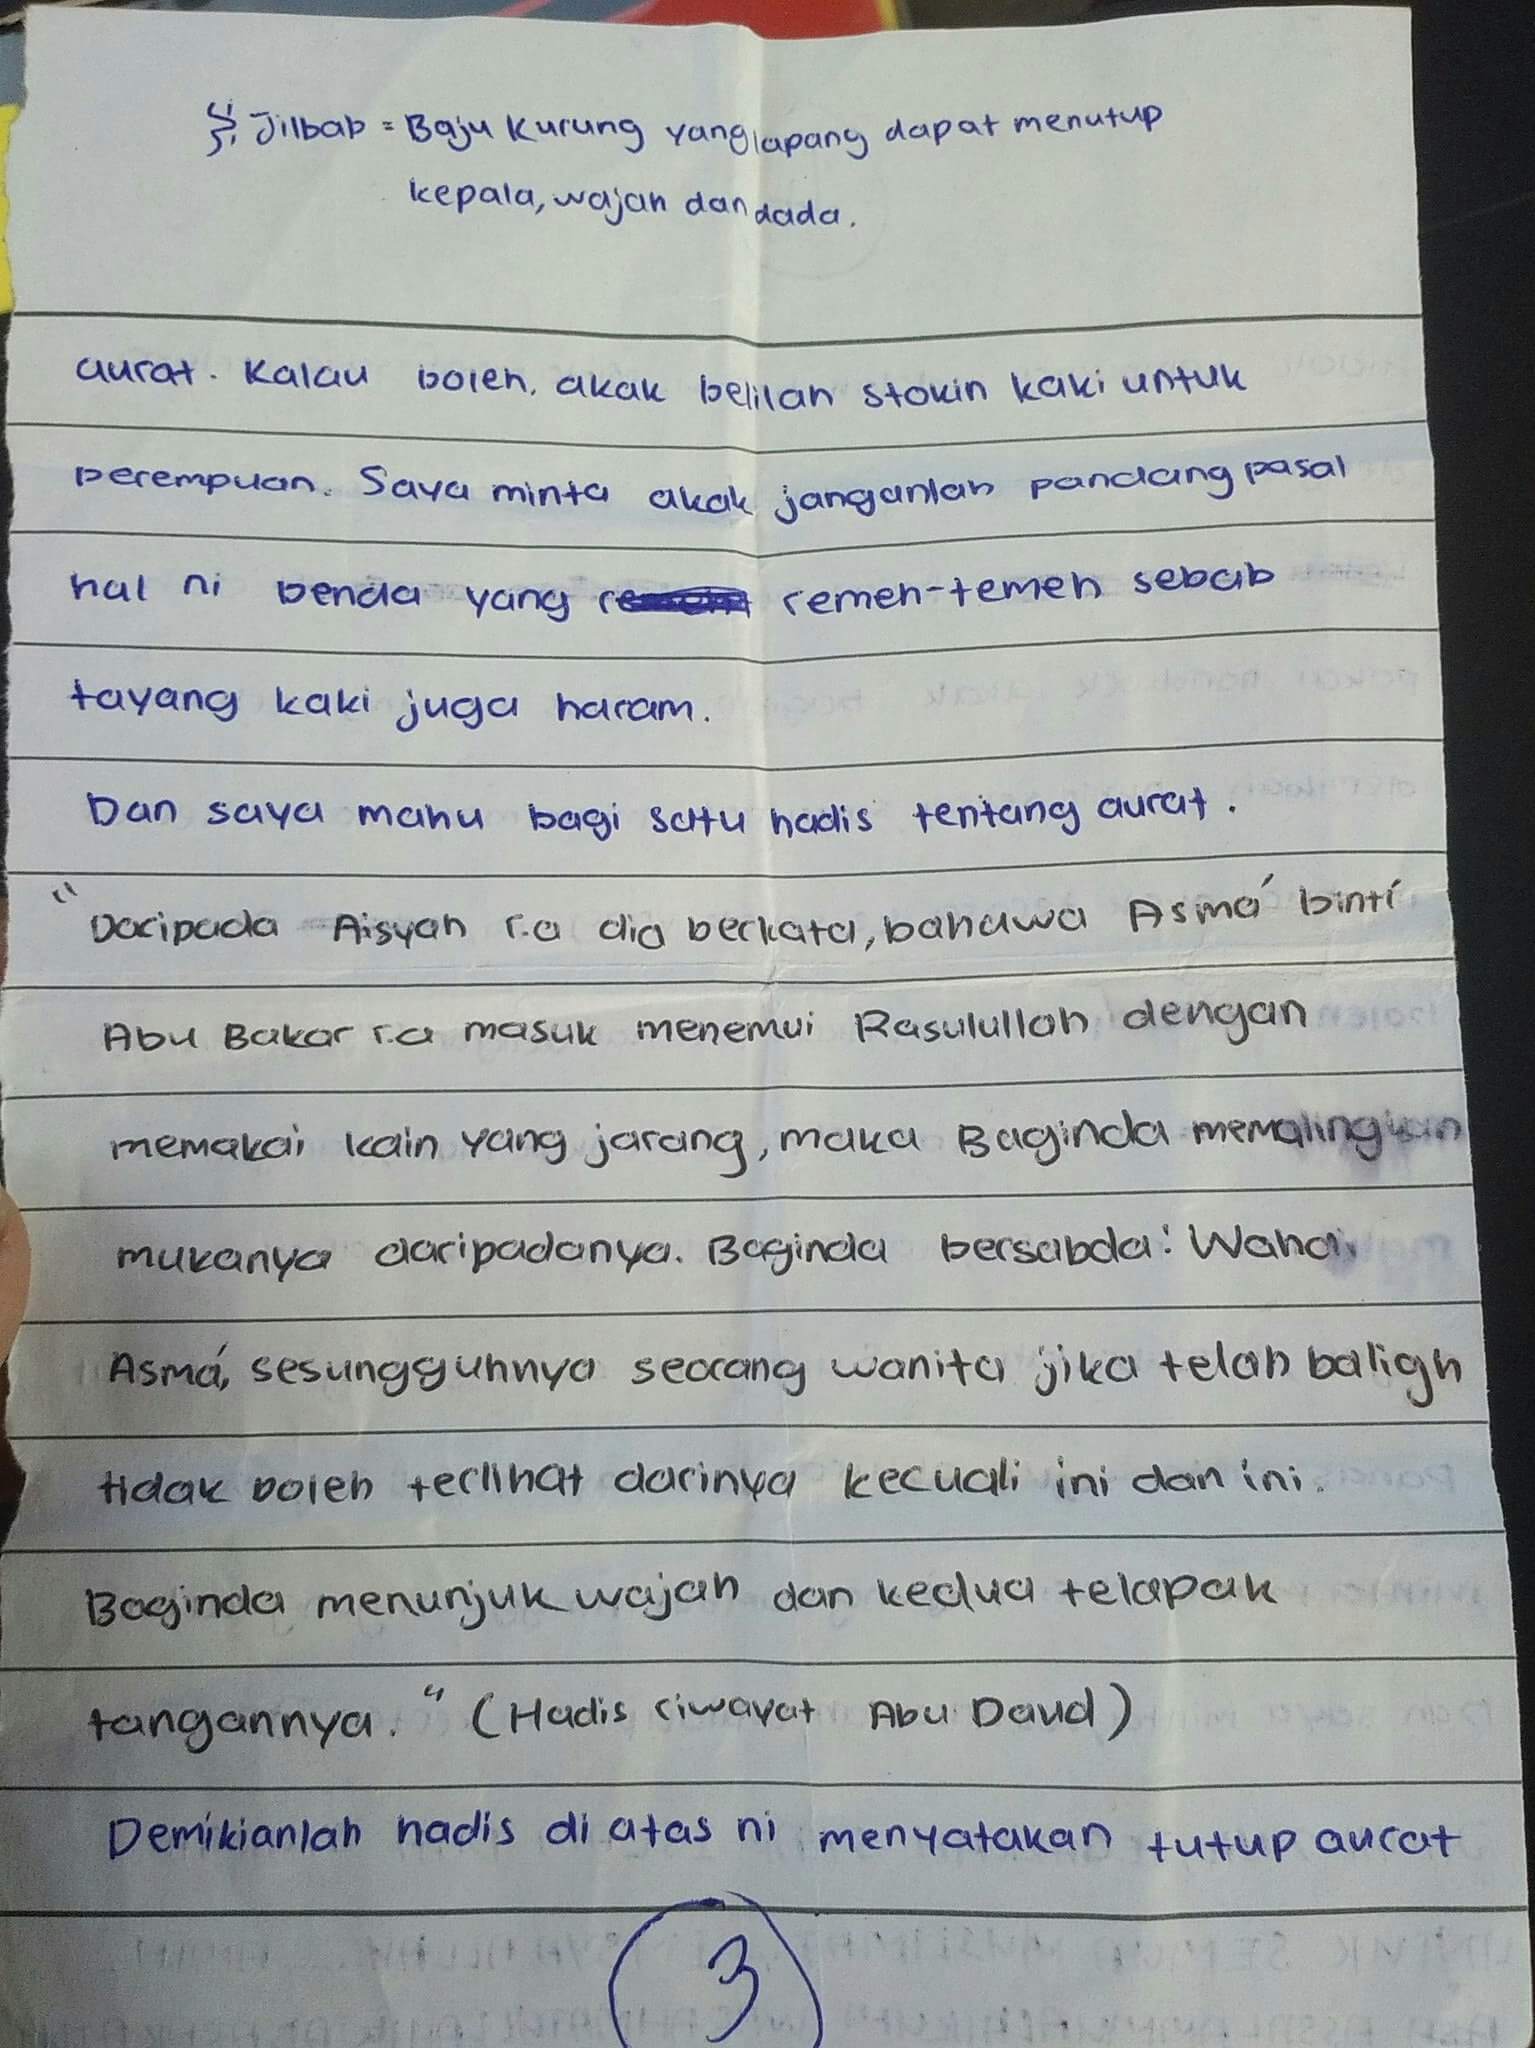 Jilbab = Baju Kurung yang lapang dapat menutup
kepala, wajah dan dada.
aurat. Kalau boleh, akak belilah stokin kaki untuk
perempuan. Saya minta akak janganlah pandang pasal
hal ni benda yang remeh-temeh sebab
tayang kaki juga haram.
Dan saya mahu bagi satu hadis tentang aurat.
"Daripada Aisyah r.a dia berkata, bahawa Asma' binti
Abu Bakar r.a masuk menemui Rasulullah dengan
memakai kain yang jarang, maka Baginda memalingkan
mukanya daripadanya. Baginda bersabda: Wahai
Asma', sesungguhnya seorang wanita jika telah baligh
tidak boleh terlihat darinya kecuali ini dan ini.
Baginda menunjuk wajah dan kedua telapak
tangannya." (Hadis riwayat Abu Daud)
Demikianlah hadis di atas ni menyatakan tutup aurat
3